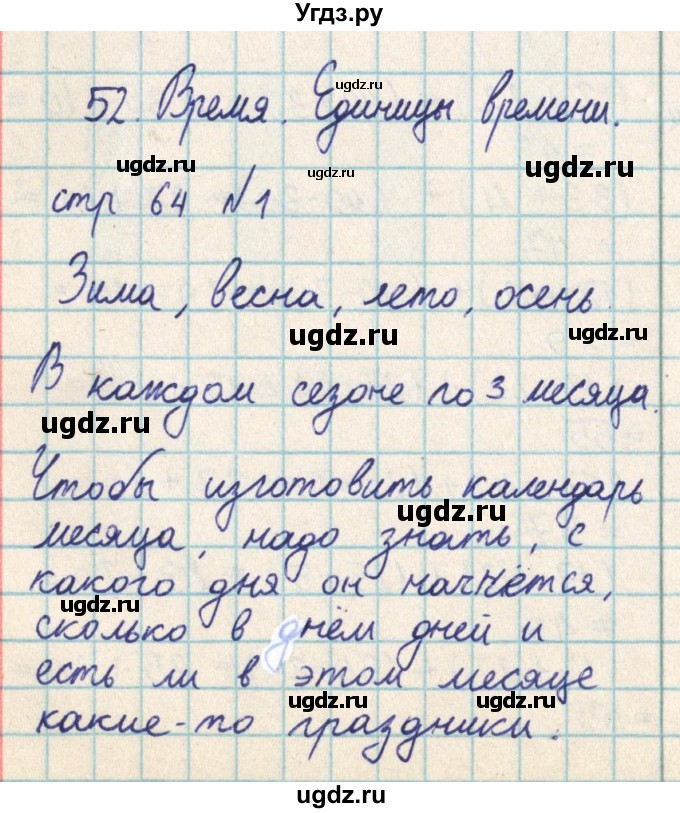 Угдз.ру
52. Время. Единицы времени.
стр 64 №1
Зима, весна, лето, осень.
В каждом сезоне по 3 месяца.
Чтобы изготовить календарь
месяца, надо знать, с
какого дня он начнётся,
сколько в днём дней и
есть ли в этом месяце
какие-то праздники.
ugdz.ru
ugdz.ru
ugdz.ru
ugdz.ru
ugdz.ru
ugdz.ru
ugdz.ru
ugdz.ru
ugdz.ru
ugdz.ru
ugdz.ru
ugdz.ru
ugdz.ru